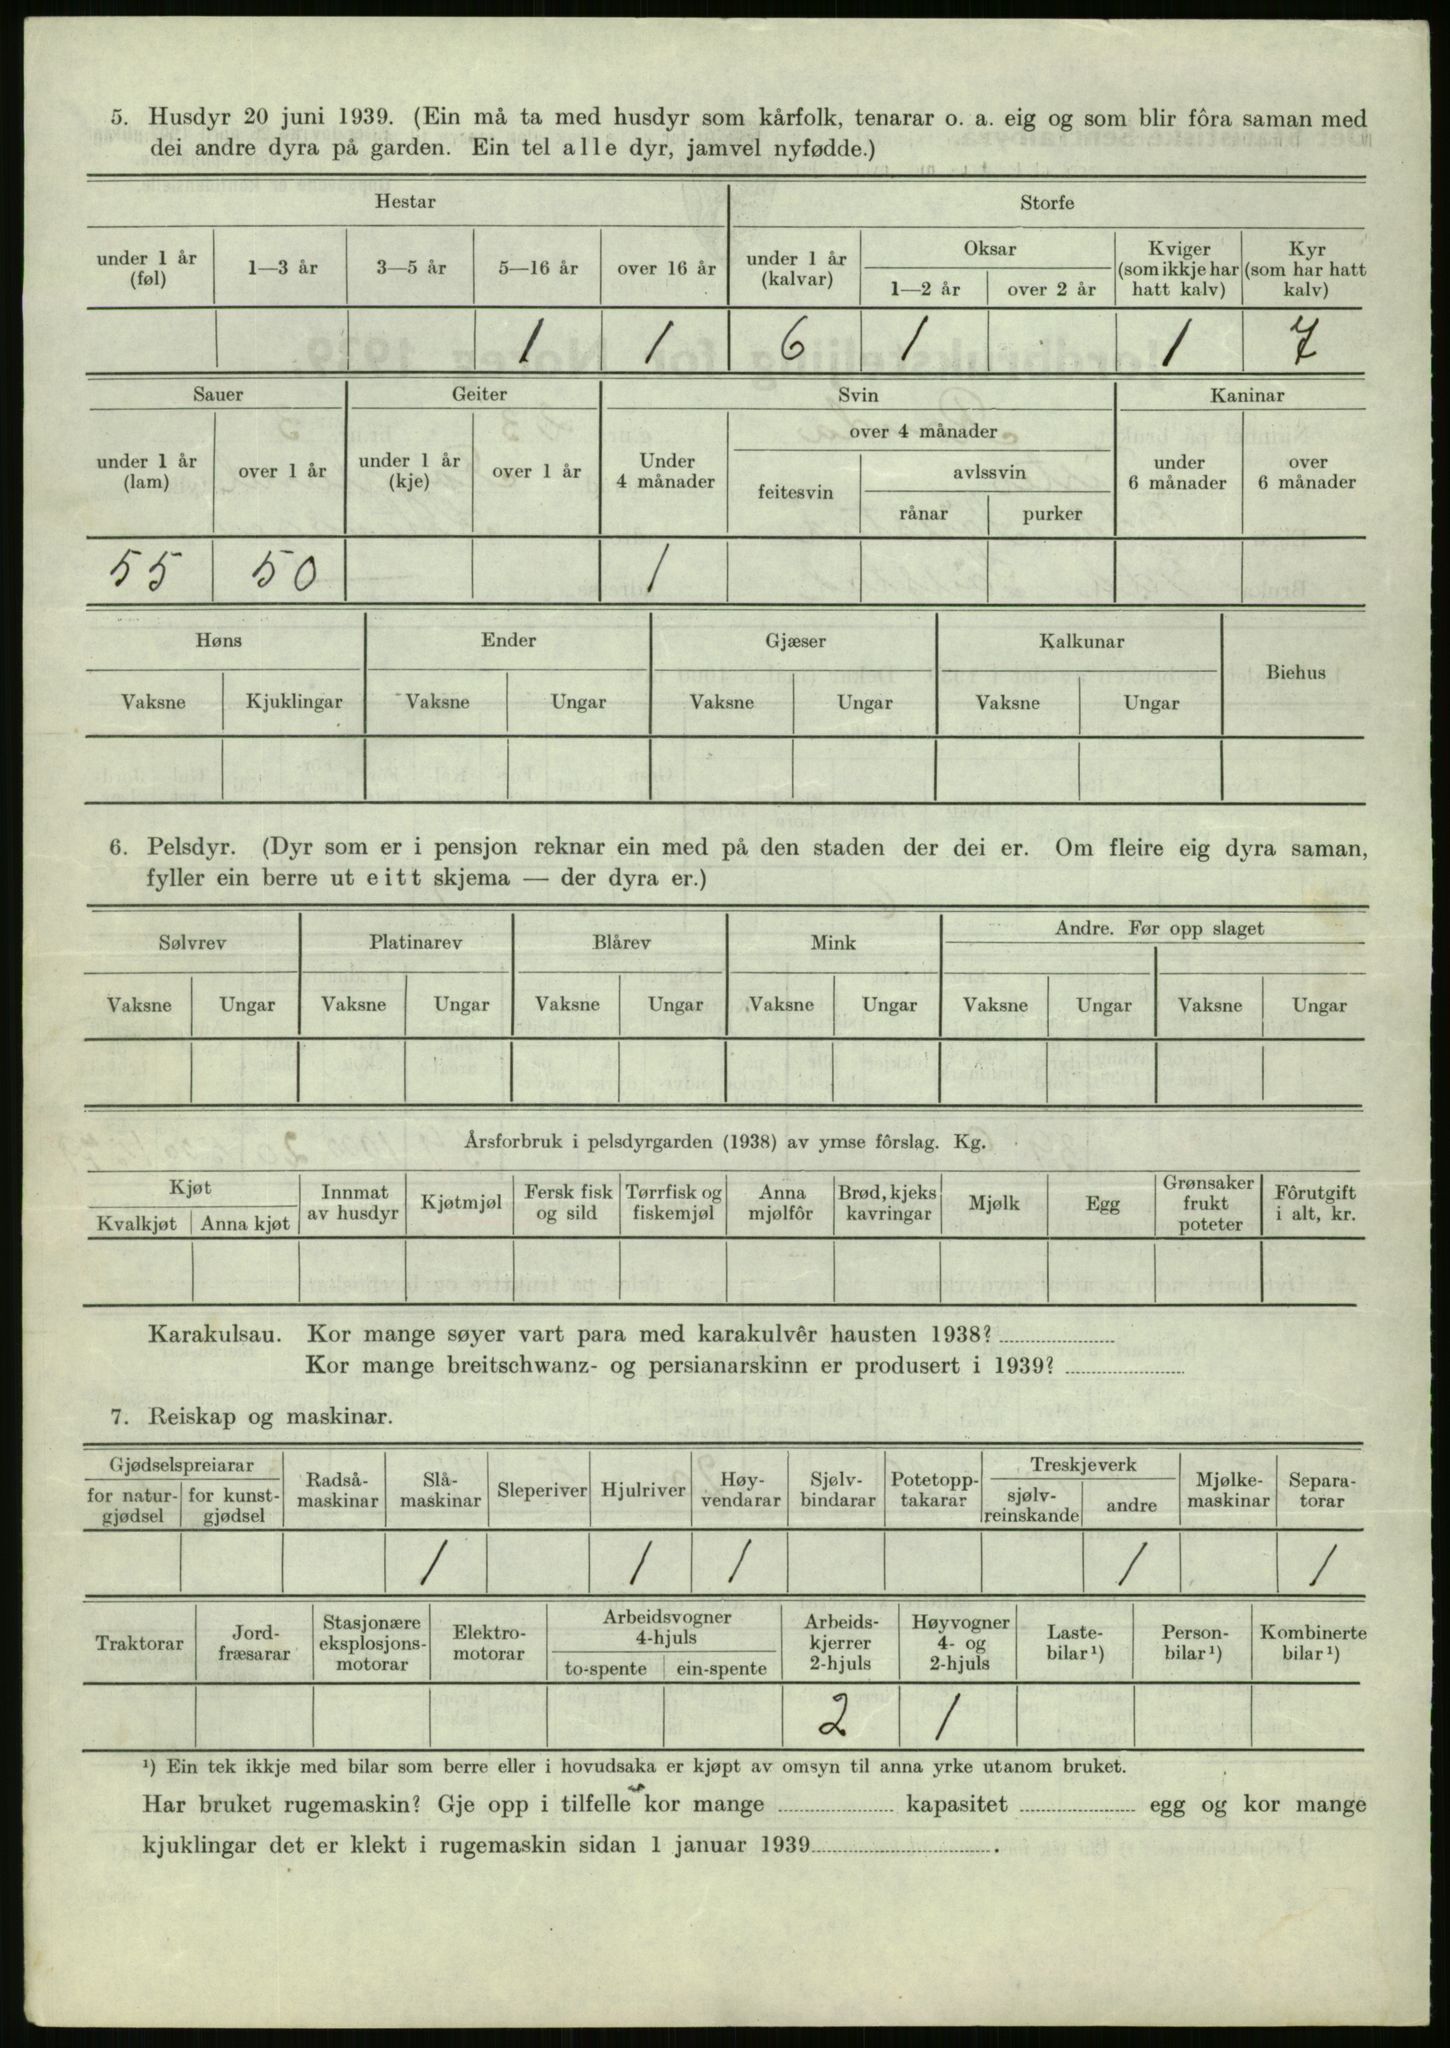 5. Husdyr 20 juni 1939. (Ein må ta med husdyr som kårfolk, tenarar o. a. eig og som blir fôra saman med
dei andre dyra på garden. Ein tel alle dyr, jamvel nyfødde.)
Hestar Storfe
under 1 år (føl) 1—3 år 3—5 år 5—16 år over 16 år under 1 år (kalvar) Oksar 1—2 år over 2 år Kviger (som ikkje har hatt kalv) Kyr (som har hatt kalv)
1 1 6 1 1 7
Sauer Geiter Svin Kaninar
under 1 år (lam) over 1 år under 1 år (kje) over 1 år Under 4 månader over 4 månader feitesvin avlssvin rånar purker under 6 månader over 6 månader
55 50 1
Høns Ender Gjæser Kalkunar Biehus
Vaksne Kjuklingar Vaksne Ungar Vaksne Ungar Vaksne Ungar
6. Pelsdyr. (Dyr som er i pensjon reknar ein med på den staden der dei er. Om fleire eig dyra saman,
fyller ein berre ut eitt skjema — der dyra er.)
Sølvrev Platinarev Blårev Mink Andre. Før opp slaget
Vaksne Ungar Vaksne Ungar Vaksne Ungar Vaksne Ungar Vaksne Ungar Vaksne Ungar
Årsforbruk i pelsdyrgarden (1938) av ymse fôrslag. Kg.
Kjøt Kvalkjøt Anna kjøt Innmat av husdyr Kjøtmjøl Fersk fisk og sild Tørrfisk og fiskemjøl Anna mjølfôr Brød, kjeks kavringar Mjølk Egg Grønsaker frukt poteter Fôrutgift i alt, kr.
Karakulsau. Kor mange søyer vart para med karakulvêr hausten 1938?
Kor mange breitschwanz- og persianarskinn er produsert i 1939?
7. Reiskap og maskinar.
Gjødselspreiarar for naturgjødsel for kunstgjødsel Radså-maskinar Slå-maskinar Sleperiver Hjulriver Høy-vendarar Sjølv-bindarar Potetopp-takarar Treskjeverk sjølv-reinskande andre Mjølke-maskinar Separa-torar
1 1 1 1 1
Traktorar Jord-fræsarar Stasjonære eksplosjons-motorar Elektro-motorar Arbeidsvogner 4-hjuls to-spente ein-spente Arbeids-kjerrer 2-hjuls Høyvogner 4- og 2-hjuls Laste-bilar ¹) Person-bilar ¹) Kombinerte bilar ¹)
2 1
¹) Ein tek ikkje med bilar som berre eller i hovudsaka er kjøpt av omsyn til anna yrke utanom bruket.
Har bruket rugemaskin? Gje opp i tilfelle kor mange kapasitet egg og kor mange
kjuklingar det er klekt i rugemaskin sidan 1 januar 1939 .